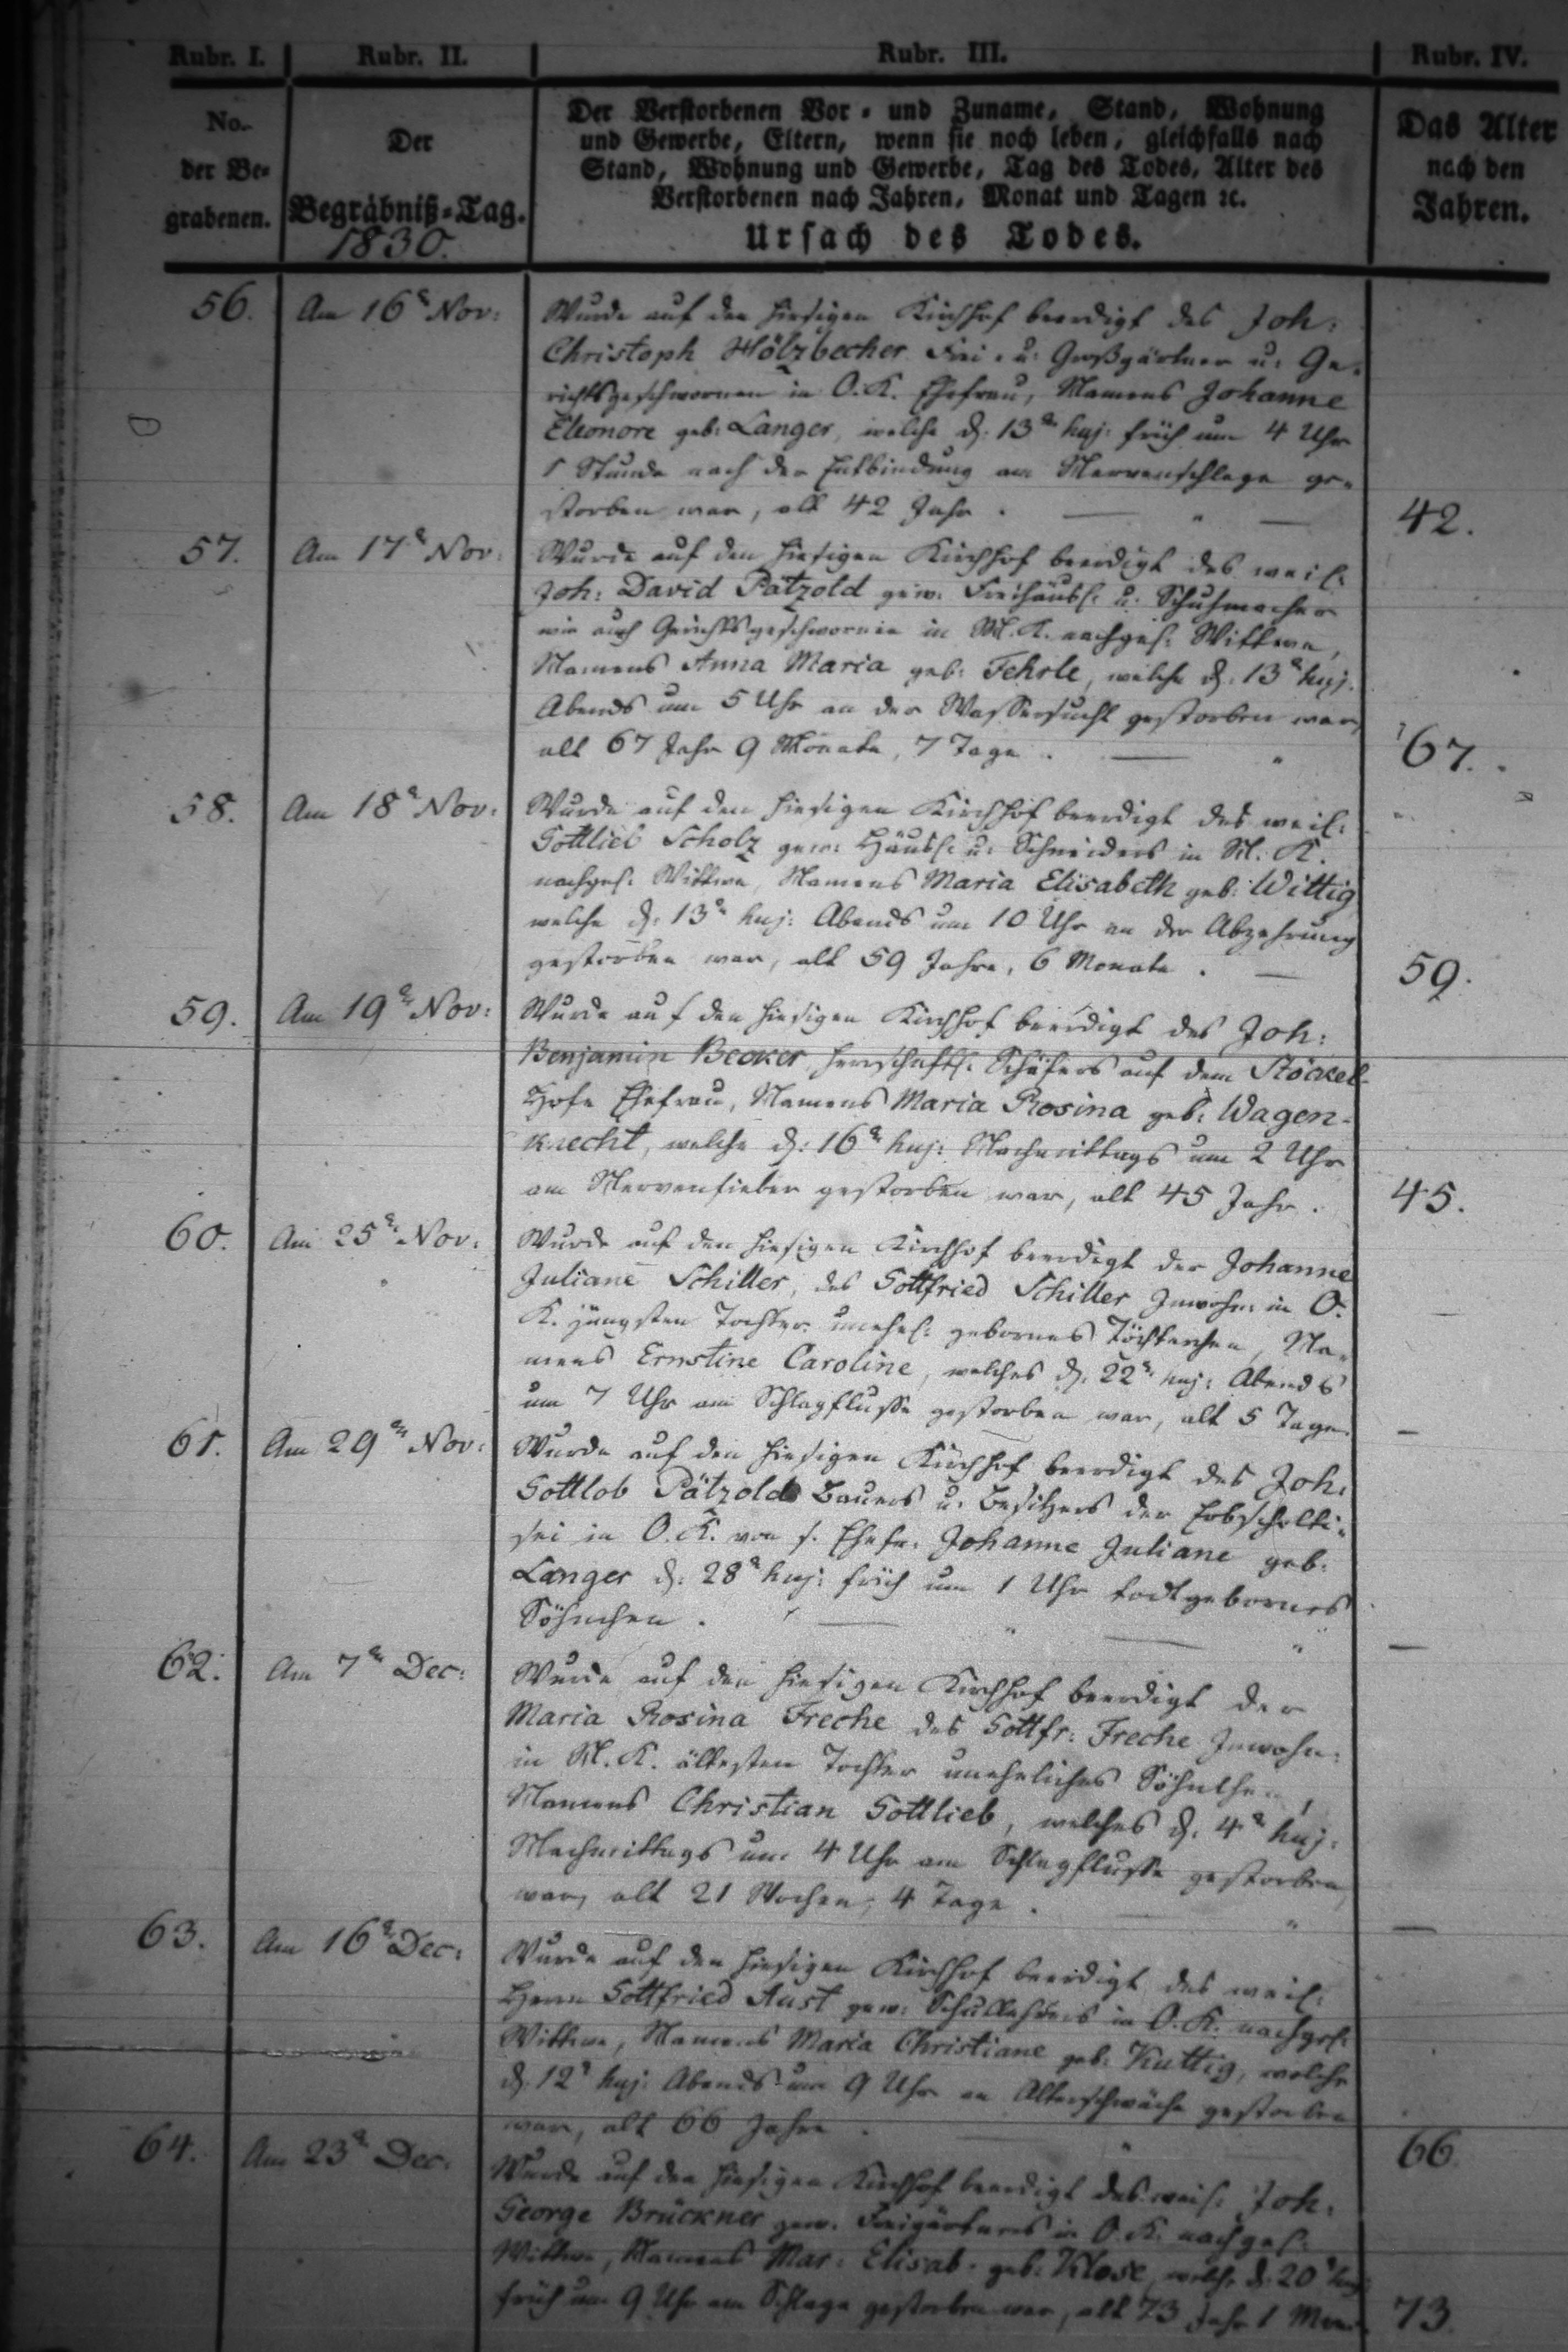 Rubr. I. Rubr. II. Rubr. III. Rubr. IV.
No. der Be- grabenen.
Der Begräbniß-Tag. 1830.
Der Verstorbenen Vor- und Zuname, Stand, Wohnung
und Gewerbe, Eltern, wenn sie noch leben, gleichfalls nach
Stand, Wohnung und Gewerbe, Tag des Todes, Alter des
Verstorbenen nach Jahren, Monat und Tagen ꝛc.
Ursach des Todes.
Das Alter nach den Jahren.
56. Am 16 Nov: Wurde auf den hiesigen Kirchhof beerdigt des Joh:
Christoph Hölzbecher Frei- u: Großgärtner u: Ge-
richtsgeschwornen in O. K. Ehefrau, Namens Johanne
Eleonore geb: Langer, welche d: 13 huj: früh um 4 Uhr
1 Stunde nach der Entbindung am Nervenschlage ge-
storben war, alt 42 Jahr. 42.
57. Am 17 Nov: Wurde auf den hiesigen Kirchhof beerdigt des weil:
Joh: David Pätzold gew: Freihäusl: u: Schuhmacher
wie auch Gerichtsgeschwornen in M. K. nachgel: Wittwe,
Namens Anna Maria geb: Fehrle, welche d: 13 huj:
Abends um 5 Uhr an der Wassersucht gestorben war,
alt 67 Jahr 9 Monate, 7 Tage. 67.
58. Am 18 Nov: Wurde auf den hiesigen Kirchhof beerdigt des weil:
Gottlieb Scholz gew: Häusl: u: Schneiders in M. K.
nachgel: Wittwe, Namens Maria Elisabeth geb: Wittig
welche d: 13 huj: Abends um 10 Uhr an der Abzehrung
gestorben war, alt 59 Jahre, 6 Monate. 59.
59. Am 19 Nov: Wurde auf den hiesigen Kirchhof beerdigt des Joh:
Benjamin Becker herrschaftl: Schäfers auf dem Stöckel-
Hofe Ehefrau, Namens Maria Rosina geb: Wagen-
knecht, welche d: 16 huj: Nachmittags um 2 Uhr
am Nervenfieber gestorben war, alt 45 Jahr. 45.
60. Am 25 Nov: Wurde auf den hiesigen Kirchhof beerdigt der Johanne
Juliane Schiller, des Gottfried Schiller Inwohn: in O.
K. jüngsten Tochter unehel: gebornes Töchterchen, Na-
mens Ernstine Caroline, welches d: 22 huj: Abends
um 7 Uhr am Schlagflusse gestorben war, alt 5 Tage. —
61. Am 29 Nov: Wurde auf den hiesigen Kirchhof beerdigt des Joh:
Gottlob Pätzold Bauers u: Besitzers der Erbscholti-
sei in O. K. von s. Ehefr: Johanne Juliane geb:
Langer d: 28 huj: früh um 1 Uhr todtgebornes
Söhnchen. —
62. Am 7 Dec: Wurde auf den hiesigen Kirchhof beerdigt der
Maria Rosina Freche des Gottfr: Freche Inwohn:
in M. K. ältesten Tochter uneheliches Söhnchen,
Namens Christian Gottlieb, welches d: 4 huj:
Nachmittags um 4 Uhr am Schlagflusse gestorben
war, alt 21 Wochen, 4 Tage. —
63. Am 16 Dec: Wurde auf den hiesigen Kirchhof beerdigt des weil:
Herrn Gottfried Aust gew: Schullehrers in O. K. nachgel:
Wittwe, Namens Maria Christiane geb: Kuttig, welche
d: 12 huj: Abends um 9 Uhr an Altersschwäche gestorben
war, alt 66 Jahre. 66.
64. Am 23 Dec: Wurde auf den hiesigen Kirchhof beerdigt des weil: Joh:
George Brückner gew: Freigärtners in O. K. nachgel:
Wittwe, Namens Mar: Elisab: geb: Klose, welche d: 20 huj:
früh um 9 Uhr am Schlage gestorben war, alt 73 Jahr 1 Mon 73.